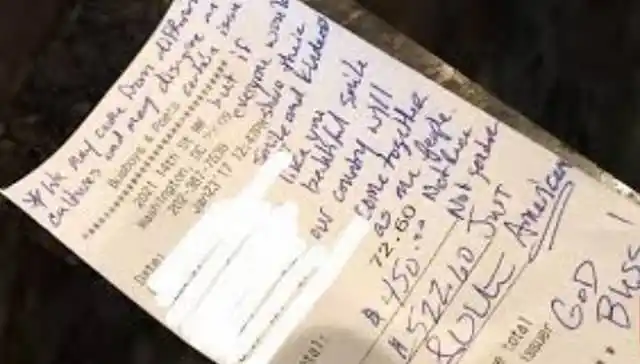 * We may come from different
cultures and may disagree on
certain issue
but if
everyone would
share their
smile and kindness
like you
beautiful smile
our country will
come together
as one people
Not race
Not gender
Just
American
Busboys & Poets
2021 14th St NW
Washington, DC
202-387-7638
Jan23'17
Date:
72.60
$ 450.00
$ 522.60
total
issuer
GOD
Bless!